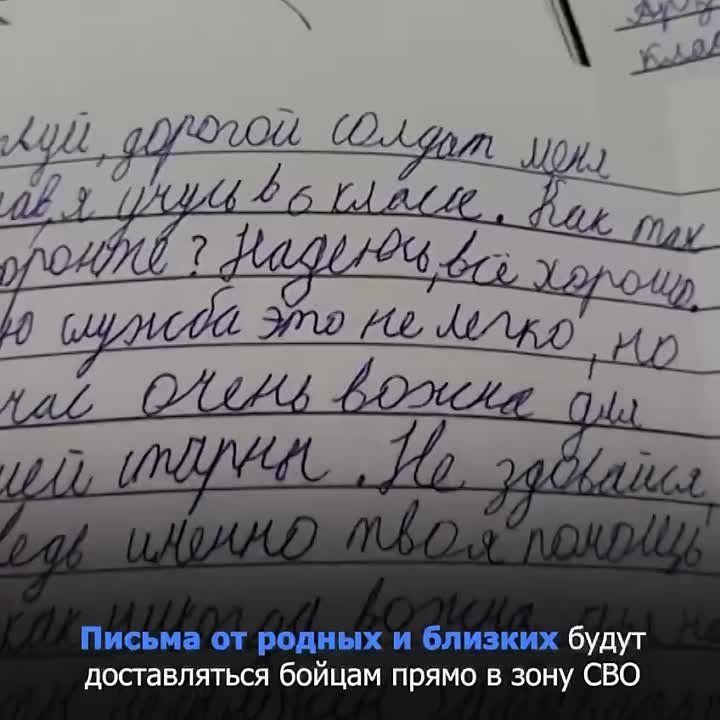 клас
луй, дорогой солдат меня
ав, я учусь в 6 классе. Как там
фронте? Надеюсь, всё хорошо.
ю служба это не легко, но
час очень вожна для
шей старны. Не здовайся,
ведь именно твоя помощь
как никогда вожна для
Письма от родных и близких будут
доставляться бойцам прямо в зону СВО